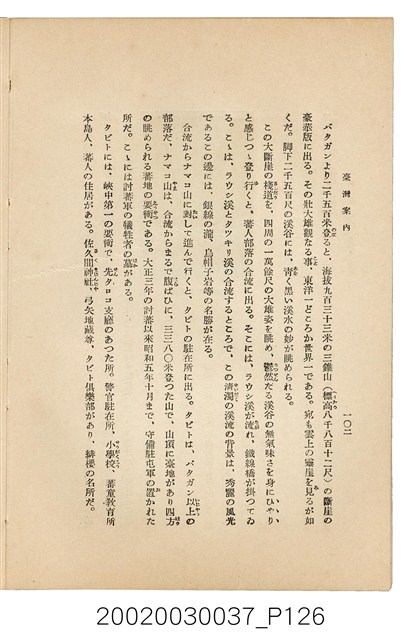 臺灣案内
一〇二
バタガンより二千五百米登ると、海拔九百三十三米の三錐山（標高八千八百十二尺）の斷崖の
豪華版に出る。その壯大雄觀なる事、東洋一どころか世界一である。宛も雲上の靈崖を見るが如
くだ。脚下二千五百尺の溪谷には、靑く黑い溪水の妙が眺められる。
この大斷崖の棧道を、四周の一萬餘尺の大雄姿を眺め、鬱然たる溪谷の無氣味さを身にひやり
と感じつゝ登り行くと、蕃人部落の合流に出る。そこには、ラウシ溪が流れ、鐵線橋が掛つてゐ
る。こゝは、ラウシ溪とタツキリ溪の合流するところで、この淸濁の溪流の背景は、秀麗の風光
であるこの邊には、銀線の瀧、烏帽子岩等の名勝が在る。
合流からナマコ山に對して進んで行くと、タビトの駐在所に出る。タビトは、バタガン以上の
部落だ、ナマコ山は、合流からまるで腹ばひに、三三八〇米登つた山で、山頂に臺地があり四方
の眺められる蕃地の要衝である。大正三年の討蕃以來昭和五年十月まで、守備駐屯軍の置かれた
所だ。こゝには討蕃軍の犧牲者の墓がある。
タビトには、峽中第一の要衝で、先タロコ支廳のあつた所。警官駐在所、小學校、蕃童敎育所
本島人、蕃人の住居がある。佐久間神社、弓矢地藏尊、タビト俱樂部があり、緋櫻の名所だ。
20020030037_P126